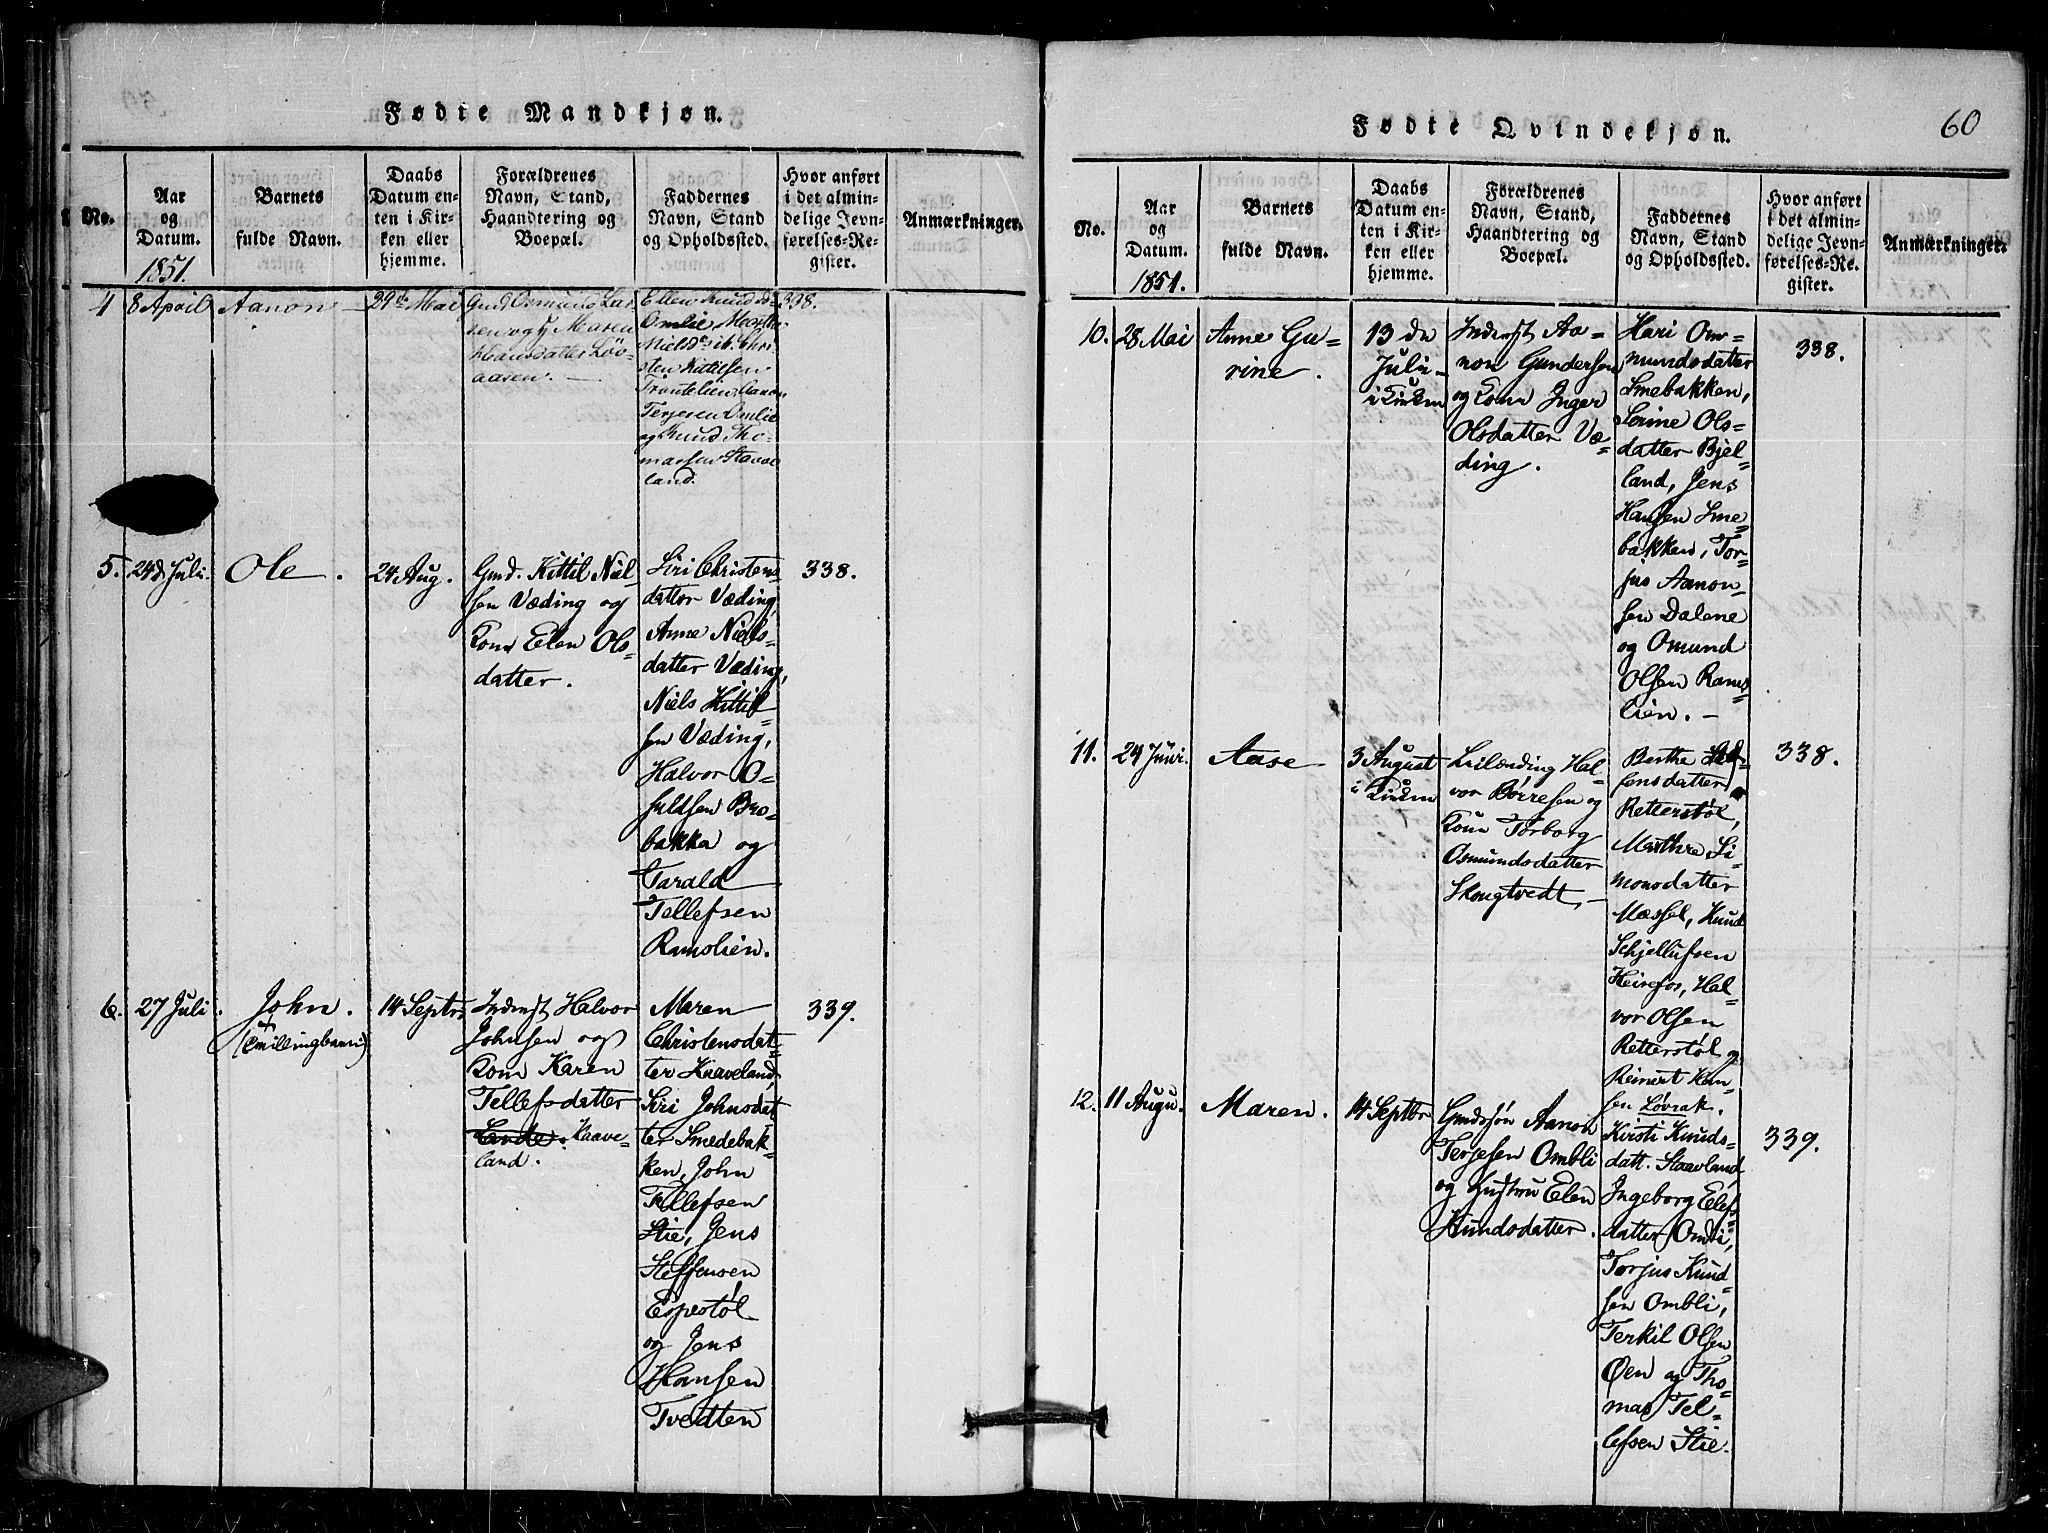 Fødte Mandkjøn.
No.
Aar
og
Datum.
1851.
Barnets
fulde Navn.
Daabs
Datum en-
ten i Kir-
ken eller
hjemme.
Forældrenes
Navn, Stand,
Haandtering og
Boepæl.
Faddernes
Navn, Stand
og Opholdssted.
Hvor anført
i det almin-
delige Jevn-
førelses-Re-
gister.
Anmærkninger.
4
8 April
Aanon
29de Mai
Gmd. Osmund Lar-
sen og H Maren
Hansdatter Löv-
aasen.
Ellen Knudsd.
Omlie, Marthe
Nielsd. ib. Chri-
sten Kittelsen
Trontelien, Aanon
Terjesen Omlie
og Knud Tho-
massen Stave
land.
338.
5.
24d Juli.
Ole.
24 Aug.
Gmd. Kittil Niel-
sen Væding og
Kone Elen Ols=
datter.
Siri Christens
datter Væding,
Anne Niels=
datter Væding,
Niels Kittil=
sen Væding,
Halvor O=
suldsen Bro=
bakka og
Tarald
Tellefsen
Ramslien.
338.
6.
27 Juli.
John.
(Tvillingbarn)
14 Septr.
Inderst Halvor
Johnsen og
Kone Karen
Tellefsdatter
Lande. Kaave-
land.
Maren
Christensdat=
ter Kaaveland,
Siri Johnsdat
ter Smedebak=
ken, John
Tellefsen
Stie, Jens
Steffensen
Espestøl
og Jens
Hansen
Tvedten
339.
Fødte Qvindekjøn.
60
No.
Aar
og
Datum.
1851.
Barnets
fulde Navn.
Daabs
Datum en-
ten i Kir-
ken eller
hjemme.
Forældrenes
Navn, Stand,
Haandtering og
Boepæl.
Faddernes
Navn, Stand
og Opholdssted.
Hvor anført
i det almin-
delige Jevn-
førelses-Re-
gister.
Anmærkninger.
10.
28 Mai
Anne Gu=
rine.
13 de
Juli
i Kirken
Inderst Aa-
non Gundersen
og Kone Inger
Olsdatter Væ=
ding.
Hari Om=
mundsdatter
Smebakken,
Serine Ols=
datter Bjel=
land, Jens
Hansen Sme=
bakken, Tor=
jus Aanon=
sen Dalene
og Omund
Olsen Rams=
lien.
338.
11.
24 Juni.
Aase
3 August
i Kirken
Leilænding Hal-
vor Börresen og
Kone Torborg
Osmundsdatter
Skougtvedt,
Berthe
sensdatter
Retterstøl,
Marthre Si=
monsdatter
Mæssel, Knud
Schjellufsen
Heirefos, Hal=
vor Olsen
Retterstøl og
Reinert Han=
sen Løvrak.
338.
12.
11 Augu.
Maren.
14 Septbr
Gmdssøn Aanon
Terjesen Ombli
og Hustru Elen
Knudsdatter.
Kirsti Knuds=
datt. Staavland
Ingeborg Elefs=
datter Omli,
Torjus Knud=
sen Ombli,
Terkil Olsen
Øen og Tho=
mas Tel=
lefsen Stie.
339.